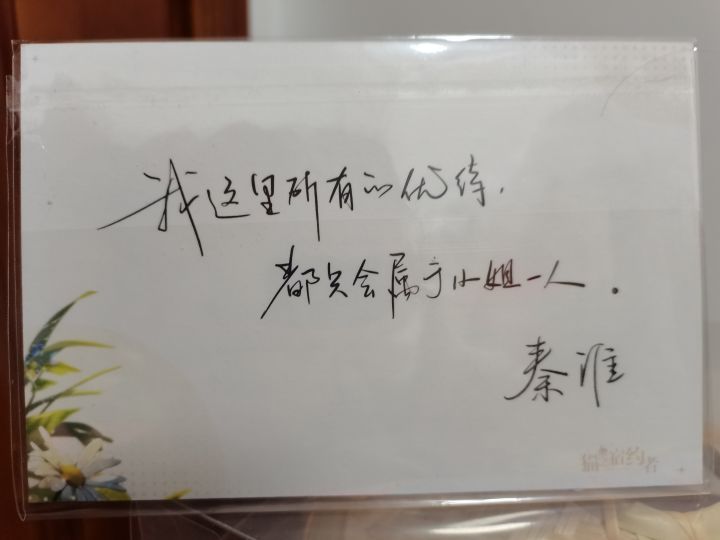 我这里所有的优待，
都只会属于小姐一人。
秦淮
猫之宿约者